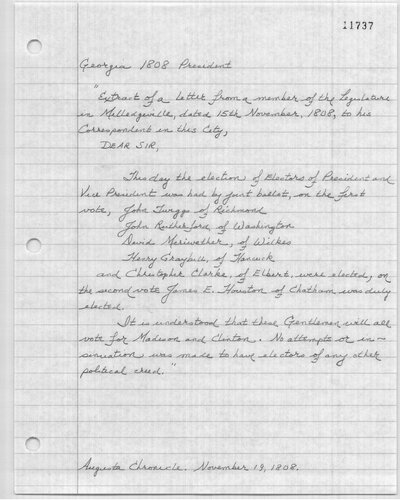 11737
Georgia 1808 President
"Extract of a Letter from a member of the Legislature
in Milledgeville, dated 15th November, 1808, to his
Correspondent in this City,
DEAR SIR,
This day the election of Electors of President and
Vice President was had by joint ballot, on the first
vote, John Twiggs of Richmond
John Rutherford of Washington
David Meriwether, of Wilkes
Henry Graybill, of Hancock
and Christopher Clarke, of Elbert, were elected, on
the second vote James E. Houston of Chatham was duly
elected.
It is understood that these Gentlemen will all
vote for Madison and Clinton. No attempts or in-
sinuation was made to have electors of any other
political creed."
Augusta Chronicle. November 19, 1808.